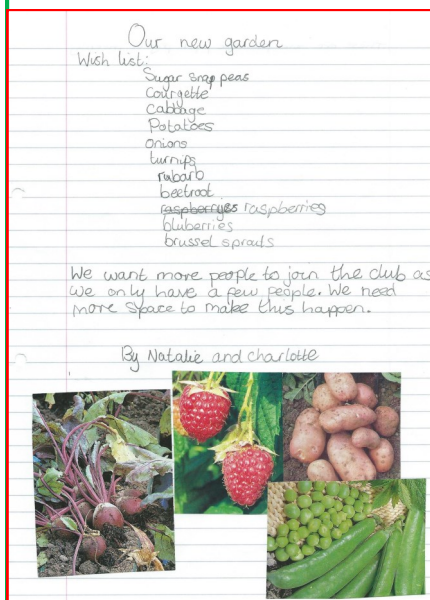 Our new garden
Wish list:
Sugar snap peas
Courgette
Cabbage
Potatoes
onions
turnips
rubarb
beetroot
raspberryes raspberries
bluberries
brussel sprouts
We want more people to join the club as
we only have a few people. We need
more space to make this happen.
By Natalie and charlotte